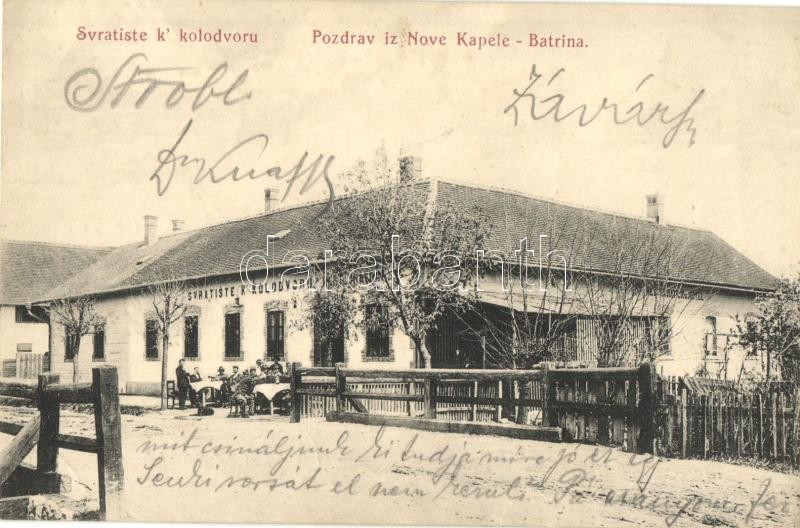 Svratiste k' kolodvoru Pozdrav iz Nove Kapele - Batrina.
Strobl Závárszky
Dr Knaffl
SVRATIŠTE K KOLODVORU
darabanth
mit csináljunk ki tudja mire jó ez így
Senki sorsát el nem kerüli. Pá